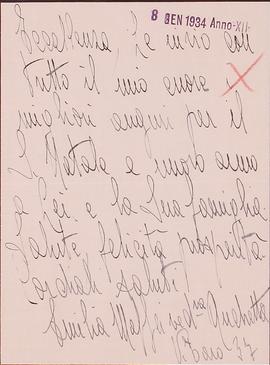 8 GEN 1934 Anno XII
Eccellenza, Le invio con
tutto il mio cuore i
migliori auguri per il
S. Natale e nuovo anno
a Lei e la Sua famiglia.
Salute, felicità prosperità.
Cordiali saluti
Emilia
37